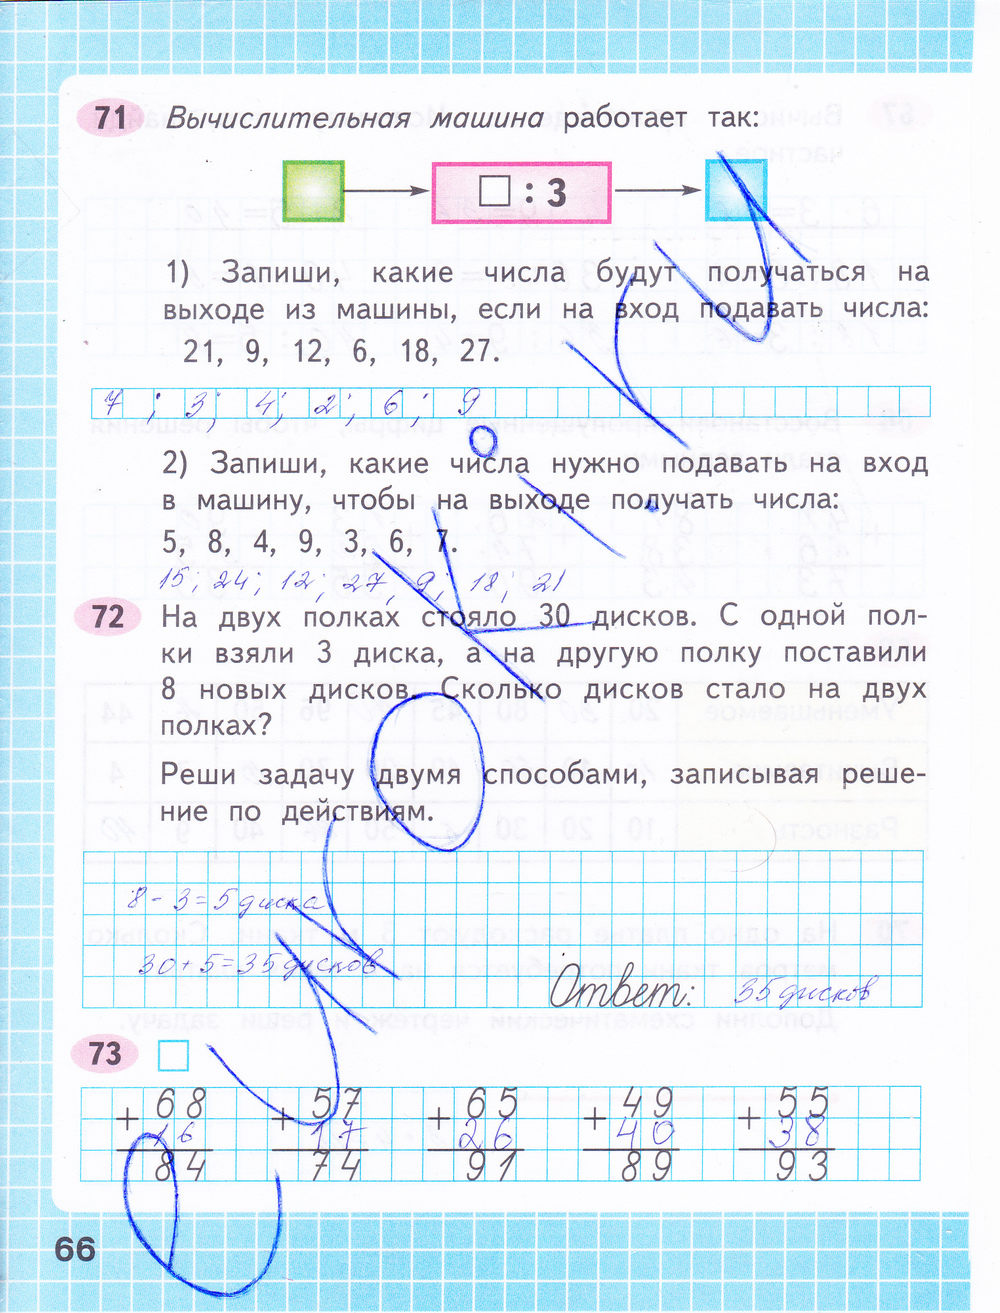 71 Вычислительная машина работает так:
□ : 3
1) Запиши, какие числа будут получаться на
выходе из машины, если на вход подавать числа:
21, 9, 12, 6, 18, 27.
7 ; 3; 4; 2; 6; 9
2) Запиши, какие числа нужно подавать на вход
в машину, чтобы на выходе получать числа:
5, 8, 4, 9, 3, 6, 7.
15; 24; 12; 27, 9; 18; 21
72 На двух полках стояло 30 дисков. С одной пол-
ки взяли 3 диска, а на другую полку поставили
8 новых дисков. Сколько дисков стало на двух
полках?
Реши задачу двумя способами, записывая реше-
ние по действиям.
8 - 3 = 5 диска
30 + 5 = 35 дисков
Ответ: 35 дисков
73 □
+ 68 + 57 + 65 + 49 + 55
16 17 26 40 38
84 74 91 89 93
66